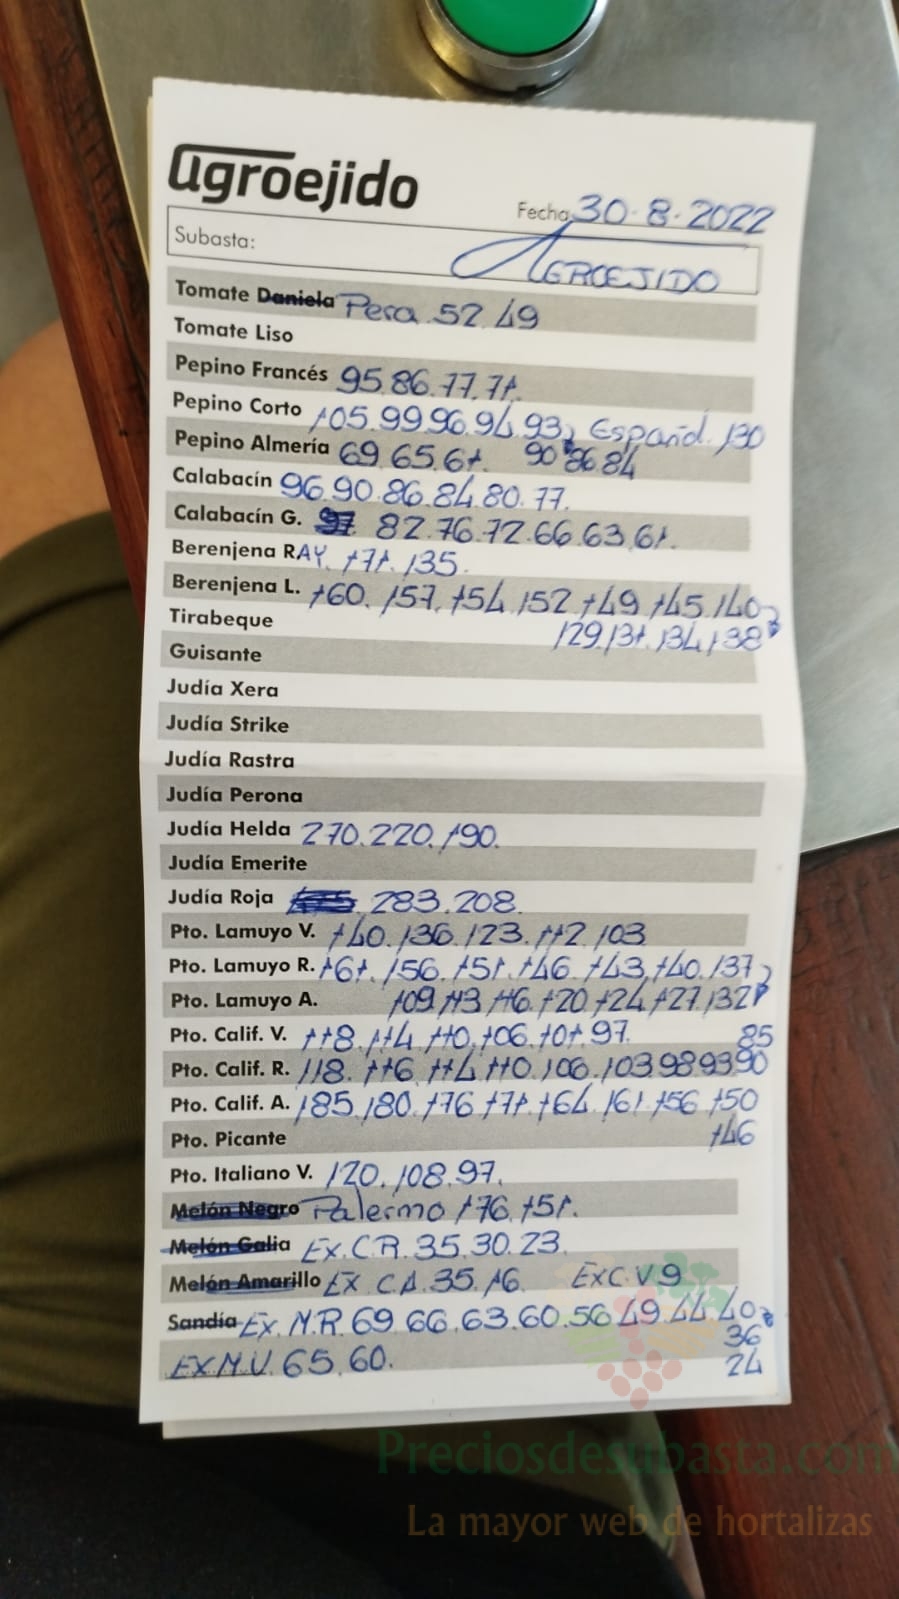 agroejido
Fecha 30-8-2022
Subasta: AGROEJIDO
Tomate Daniela Pera 52.49
Tomate Liso
Pepino Francés 95.86.77.71.
Pepino Corto 105.99.96.94.93, Español. 130
Pepino Almería 69.65.61. 90 86 84
Calabacín 96.90.86.84.80.77.
Calabacín G. 97 82.76.72.66.63.61.
Berenjena RAY. 171.135.
Berenjena L. 160.157.154.152.149.145.140
Tirabeque 129.131.134.138
Guisante
Judía Xera
Judía Strike
Judía Rastra
Judía Perona
Judía Helda 270.220.190.
Judía Emerite
Judía Roja 283.208.
Pto. Lamuyo V. 140.136.123.112.103
Pto. Lamuyo R. 161.156.151.146.143.140.137
Pto. Lamuyo A. 109.113.116.120.124.127.132
Pto. Calif. V. 118.114.110.106.101.97. 85
Pto. Calif. R. 118.116.114.110.106.103.98.93.90
Pto. Calif. A. 185.180.176.171.164.161.156.150
Pto. Picante 146
Pto. Italiano V. 120.108.97.
Melón Negro Palermo 176.151.
Melón Galia Ex.C.R.35.30.23.
Melón Amarillo EX C.A.35.16. EXC.V 9
Sandía Ex.M.R.69.66.63.60.56.49.44.40
36
EX.M.V.65.60. 24
Preciosdesubasta.com
La mayor web de hortalizas